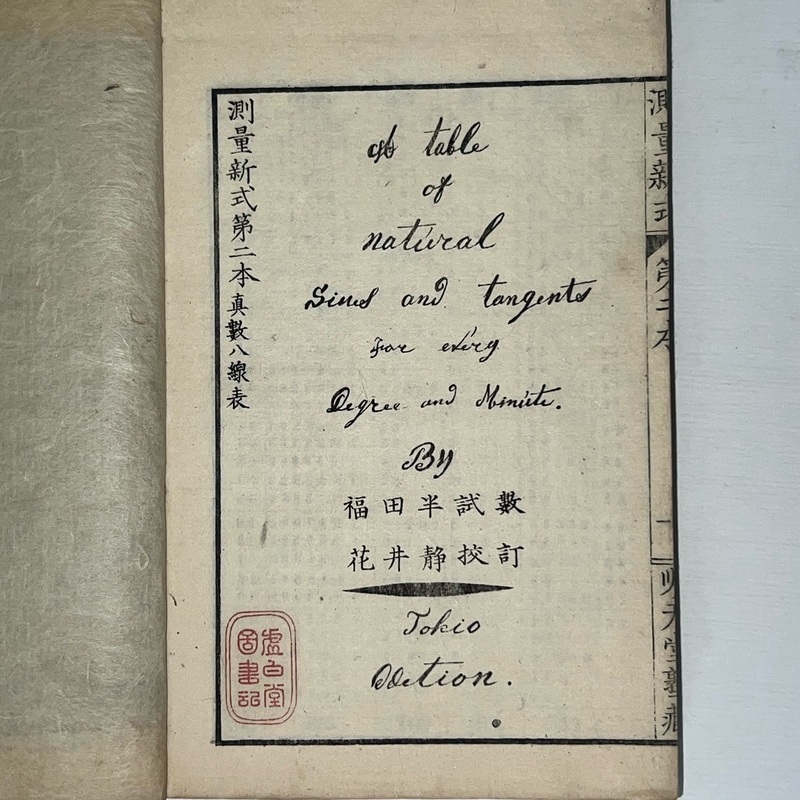 測量新式第二本 真數八線表
A table
of
natural
Sines and tangents
for every
Degree and Minute.
By
福田半試數
花井静挍訂
Tokio
Edetion.
虚白堂
圖書記
測量新式
第二本
一
順天堂塾蔵